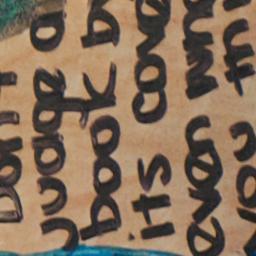 Don't
Judge a
book b
its cove
even
you